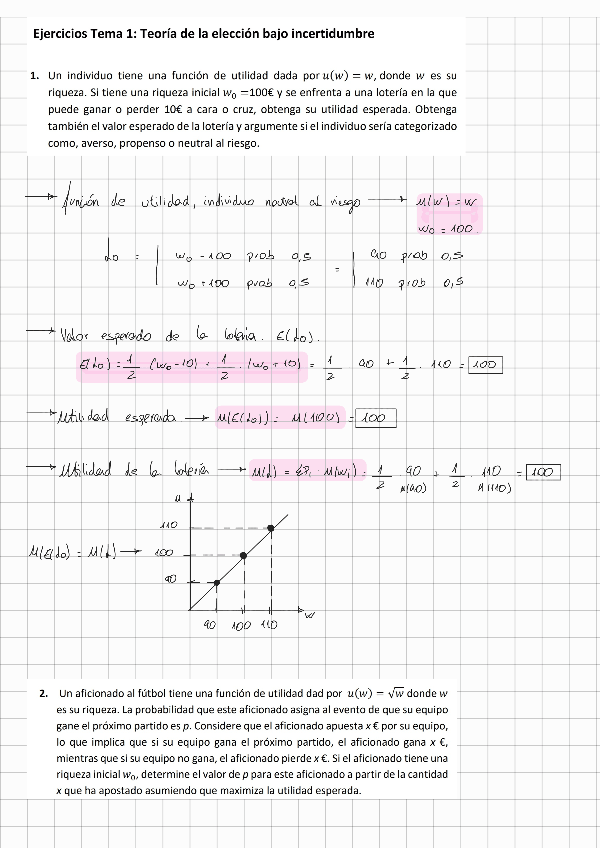 Ejercicios Tema 1: Teoría de la elección bajo incertidumbre
1. Un individuo tiene una función de utilidad dada por u(w) = w, donde w es su
riqueza. Si tiene una riqueza inicial w₀ =100€ y se enfrenta a una lotería en la que
puede ganar o perder 10€ a cara o cruz, obtenga su utilidad esperada. Obtenga
también el valor esperado de la lotería y argumente si el individuo sería categorizado
como, averso, propenso o neutral al riesgo.
→ función de utilidad, individuo neutral al riesgo → u(w) = w
w₀ = 100.
L₀ = | w₀ - 100 prob 0,5 = | 90 prob 0,5
w₀ + 100 prob 0,5 110 prob 0,5
→ Valor esperado de la lotería. E(L₀).
E(L₀) = 1/2 (w₀ - 10) + 1/2 . (w₀ + 10) = 1/2 90 + 1/2 . 110 = 100
→ Utilidad esperada → u(E(L₀)) = u(100) = 100
→ Utilidad de la lotería → u(L) = ΣPᵢ · u(wᵢ) = 1/2 . 90 + 1/2 . 110 = 100
u(90) u(110)
u
110
u(E(L₀) = u(L) → 100
90
w
90 100 110
2. Un aficionado al fútbol tiene una función de utilidad dad por u(w) = √w donde w
es su riqueza. La probabilidad que este aficionado asigna al evento de que su equipo
gane el próximo partido es p. Considere que el aficionado apuesta x € por su equipo,
lo que implica que si su equipo gana el próximo partido, el aficionado gana x €,
mientras que si su equipo no gana, el aficionado pierde x €. Si el aficionado tiene una
riqueza inicial w₀, determine el valor de p para este aficionado a partir de la cantidad
x que ha apostado asumiendo que maximiza la utilidad esperada.